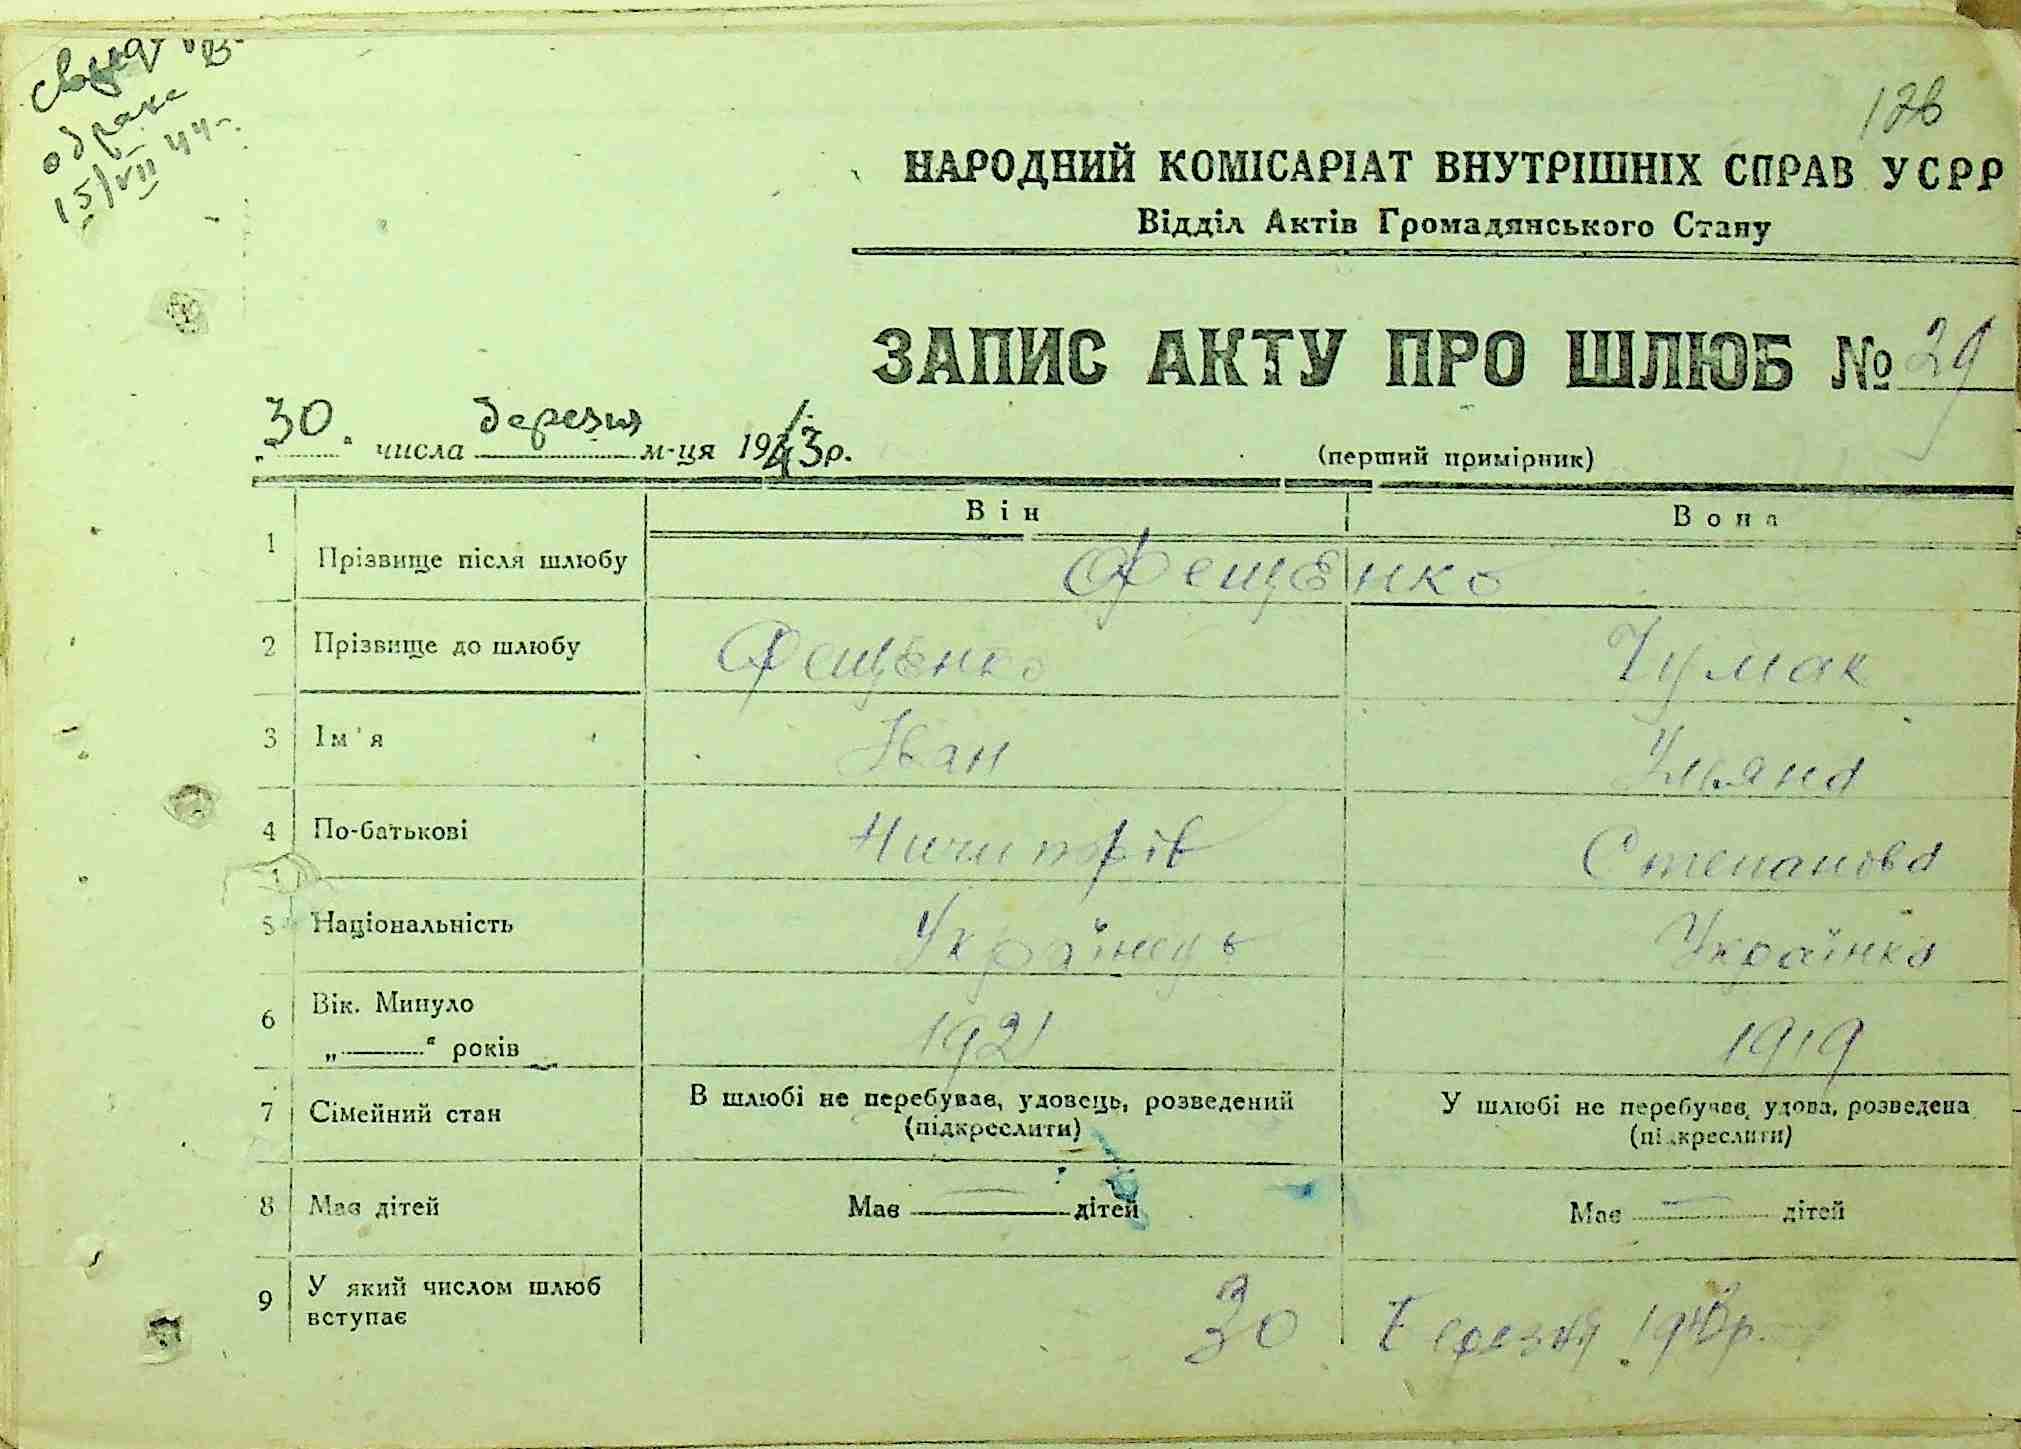 одрака
15/VII 44
126
НАРОДНИЙ КОМІСАРІАТ ВНУТРІШНІХ СПРАВ УСРР
Відділ Актів Громадянського Стану
ЗАПИС АКТУ ПРО ШЛЮБ № 29
„30“ числа березня м-ця 1943 р.
(перший примірник)
Він Вона
1 Прізвище після шлюбу Фещенко
2 Прізвище до шлюбу Фещенко Чумак
3 Ім'я Іван Ульяна
4 По-батькові Ничипорів Степанова
5 Національність Українець Українка
6 Вік. Минуло
„ “ років 1921 1919
7 Сімейний стан В шлюбі не перебував, удовець, розведений (підкреслити) У шлюбі не перебував, удова, розведена (підкреслити)
8 Має дітей Має — дітей Має — дітей
9 У який числом шлюб
вступає 30 Березня 1943 р.